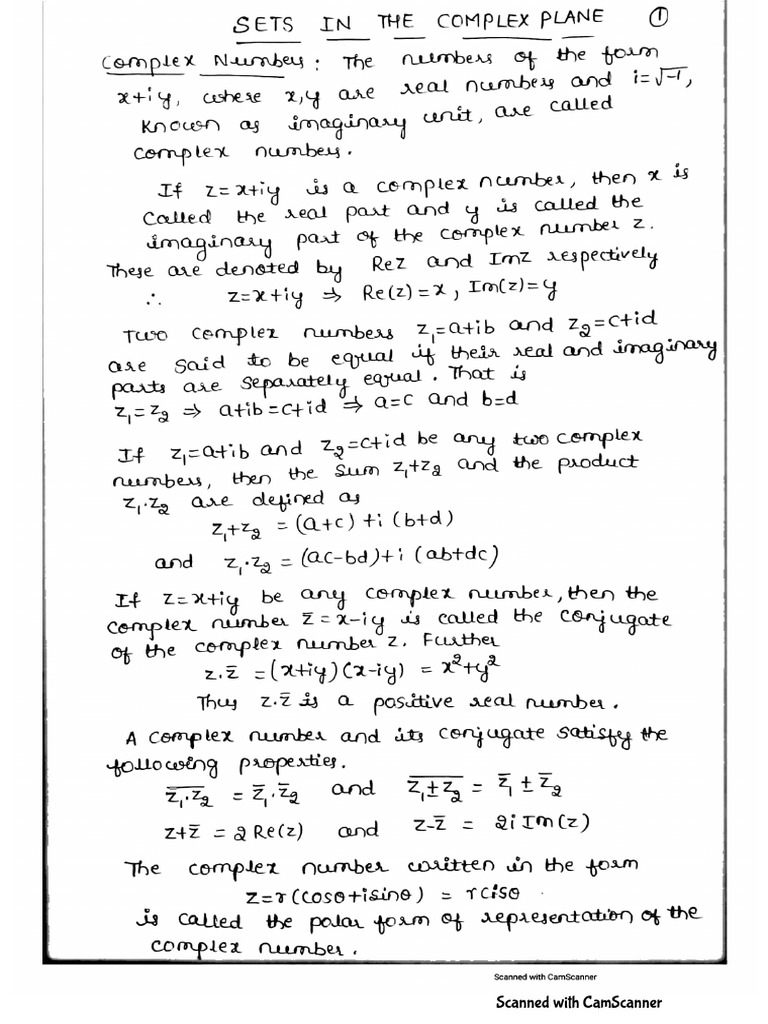 SETS IN THE COMPLEX PLANE ①
Complex Numbers: The numbers of the form
x+iy, where x,y are real numbers and i=√-1,
known as imaginary unit, are called
complex numbers.
If z=x+iy is a complex number, then x is
called the real part and y is called the
imaginary part of the complex number z.
These are denoted by Rez and Imz respectively
∴ z=x+iy ⇒ Re(z)=x, Im(z)=y
Two complex numbers z₁=a+ib and z₂=c+id
are said to be equal if their real and imaginary
parts are separately equal. That is
z₁=z₂ ⇒ a+ib=c+id ⇒ a=c and b=d
If z₁=a+ib and z₂=c+id be any two complex
numbers, then the sum z₁+z₂ and the product
z₁.z₂ are defined as
z₁+z₂ = (a+c)+i(b+d)
and z₁.z₂ = (ac-bd)+i(ab+dc)
If z=x+iy be any complex number, then the
complex number z̄=x-iy is called the conjugate
of the complex number z. Further
z.z̄ = (x+iy)(x-iy) = x²+y²
Thus z.z̄ is a positive real number.
A complex number and its conjugate satisfy the
following properties.
\overline{z₁.z₂} = z̄₁.z̄₂ and \overline{z₁±z₂} = z̄₁±z̄₂
z+z̄ = 2Re(z) and z-z̄ = 2i Im(z)
The complex number written in the form
z=r(cosθ+isinθ) = rcisθ
is called the polar form of representation of the
complex number.
Scanned with CamScanner
Scanned with CamScanner